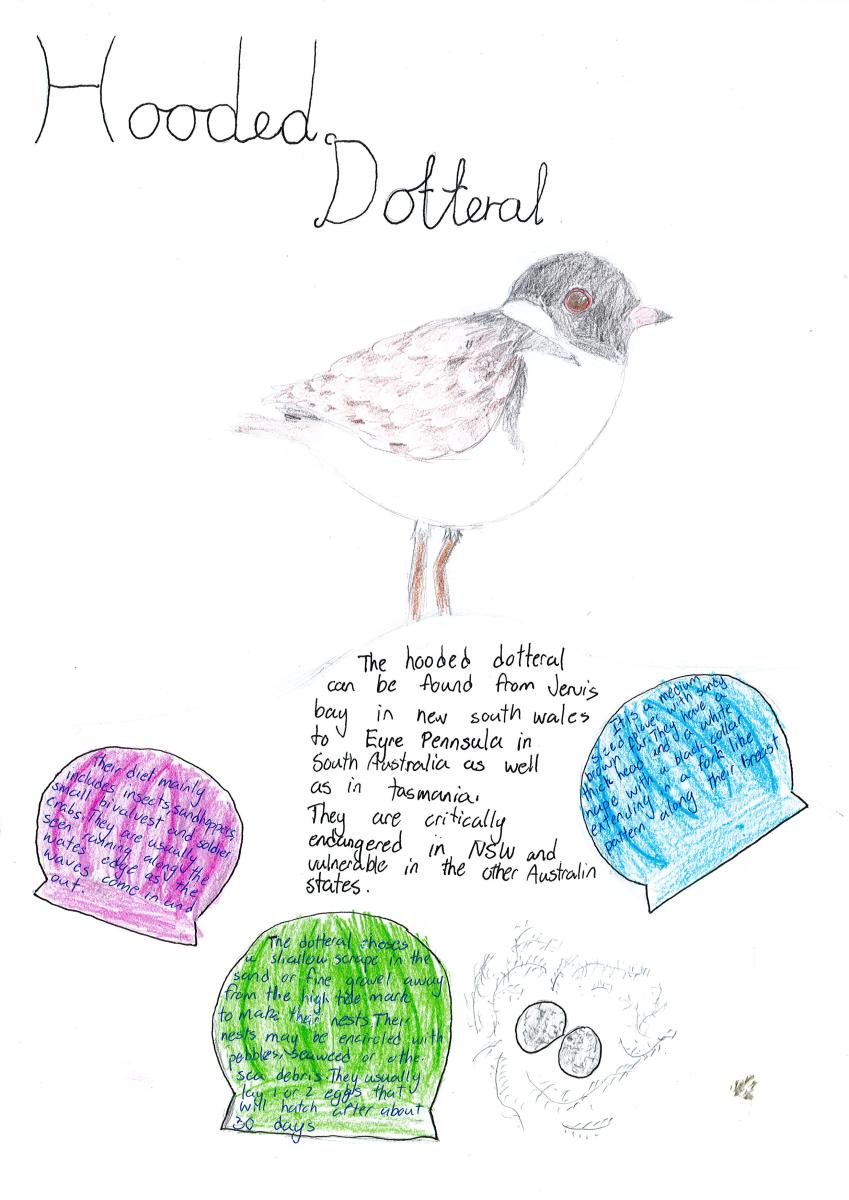 Hooded
Dotteral
The hooded dotteral
can be found from Jervis
bay in new south wales
to Eyre Pennsula in
South Australia as well
as in tasmania.
They are critically
endangered in NSW and
vulnerable in the other Australin
states.
It is a medium
sized plover with sandy
brown fur. They have a
thick head and a white
nape with a black collar
extending in a fork like
pattern along their breast
Their diet mainly
includes insects, sandhoppers,
small bivalvest and soldier
crabs. They are usually
seen running along the
wates edge as the
waves come in and
out.
The dotteral choses
a shallow scrape in the
sand or fine gravel away
from the high tide mark
to make their nests. Their
nests may be encircled with
pebbles, seaweed or othe
sea debris. They usually
lay 1 or 2 eggs that
will hatch after about
30 days